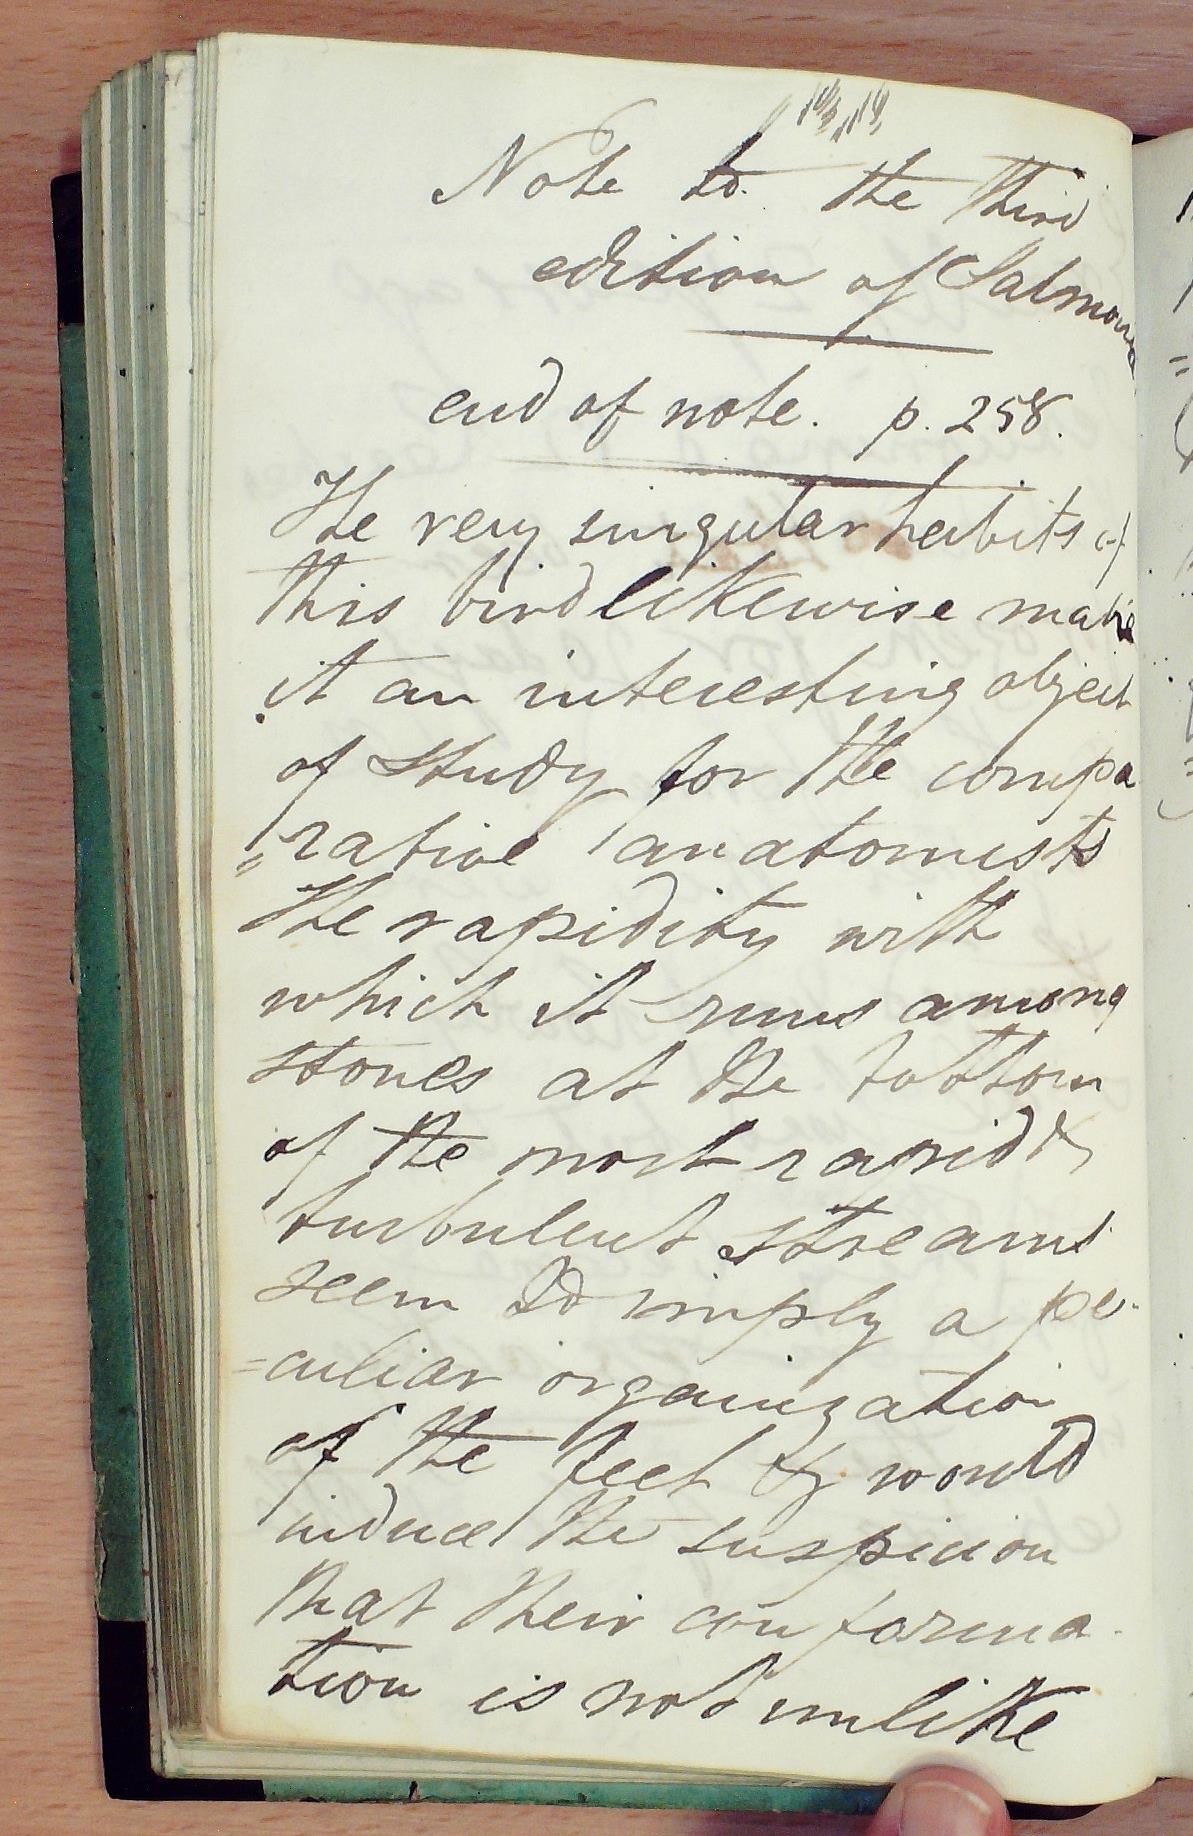 Note to the third
edition of Salmonia
end of note. p. 258.
The very singular habits of
this bird likewise make
it an interesting object
of study for the compa
"rative anatomists
the rapidity with
which it runs among
stones at the bottom
of the most rapid &
turbulent streams
seem to imply a pe-
=culiar organization
of the feet & would
induce the suspicion
that their conforma-
tion is not unlike